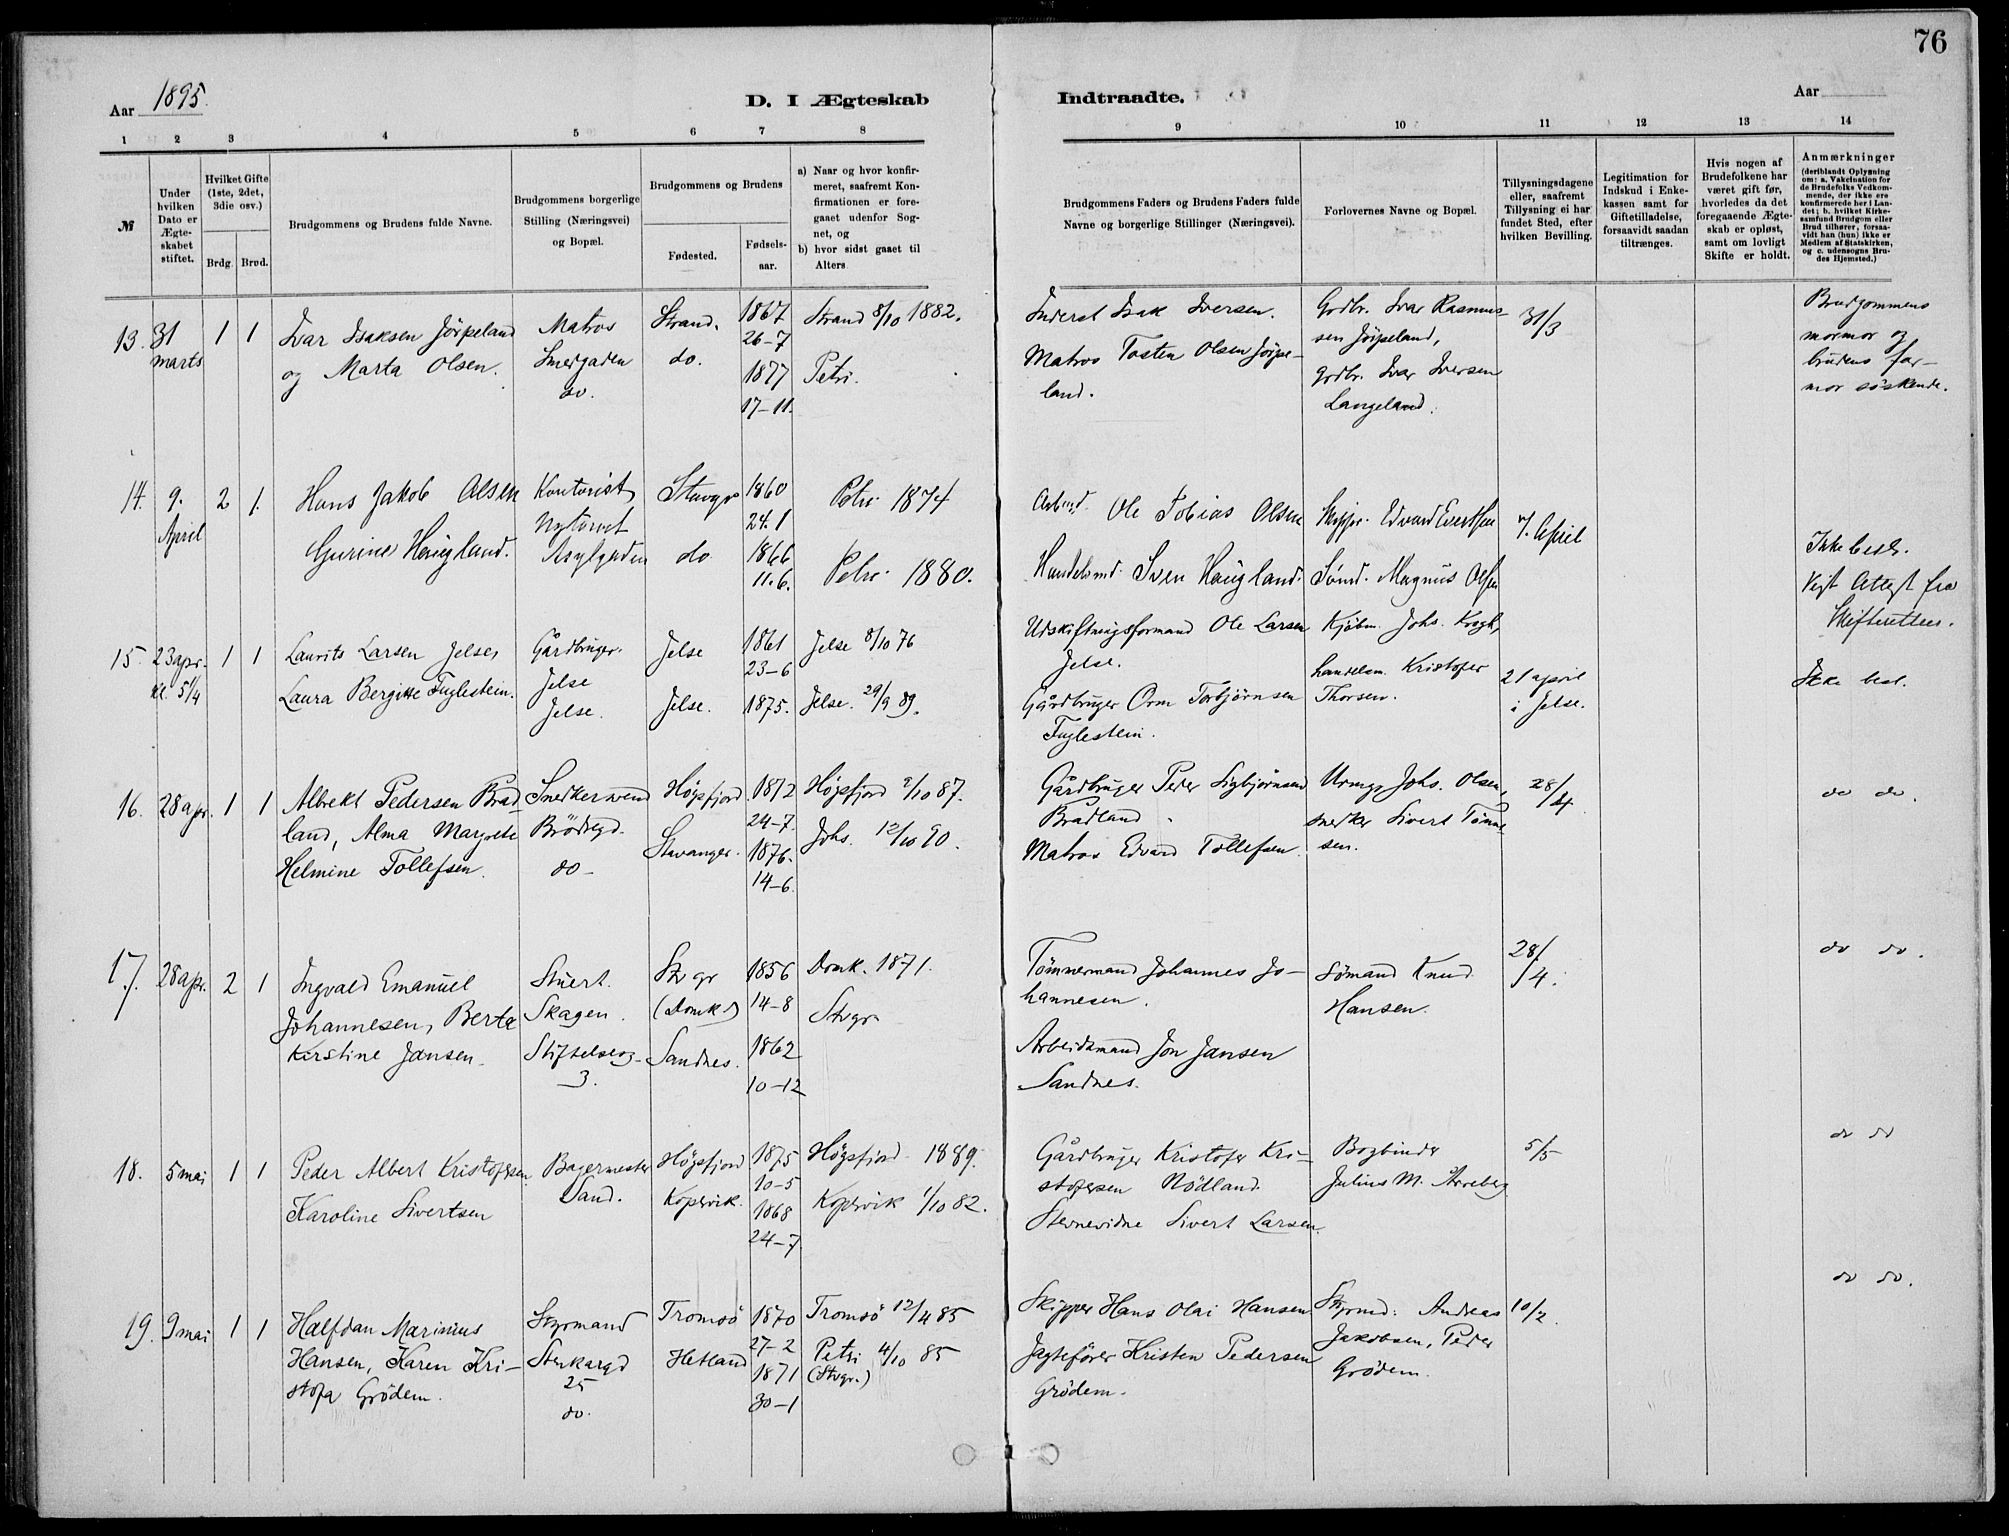 76
Aar 1895.
D. I Ægteskab
Indtraadte.
Aar
1 2 3 4 5 6 7 8 9 10 11 12 13 14
№
Under
hvilken
Dato er
Ægte-
skabet
stiftet.
Hvilket Gifte
(1ste, 2det,
3die osv.)
Brdg. Brud.
Brudgommens og Brudens fulde Navne.
Brudgommens borgerlige
Stilling (Næringsvei)
og Bopæl.
Brudgommens og Brudens
Fødested.
Fødsels-
aar.
a) Naar og hvor konfir-
meret, saafremt Kon-
firmationen er fore-
gaaet udenfor Sog-
net, og
b) hvor sidst gaaet til
Alters
Brudgommens Faders og Brudens Faders fulde
Navne og borgerlige Stillinger (Næringsvei).
Forlovernes Navne og Bopæl.
Tillysningsdagene
eller, saafremt
Tillysning ei har
fundet Sted, efter
hvilken Bevilling.
Legitimation for
Indskud i Enke-
kassen samt for
Giftetilladelse,
forsaavidt saadan
tiltrænges.
Hvis nogen af
Brudefolkene har
været gift før,
hvorledes da det
foregaaende Ægte-
skab er opløst,
samt om lovligt
Skifte er holdt.
Anmærkninger
(deriblandt Oplysning
om: a. Vakcination for
de Brudefolks Vedkom-
mende, der ikke ere
konfirmerede her i Lan-
det; b. hvilket Kirke-
samfund Brudgom eller
Brud tilhører, forsaa-
vidt han (hun) ikke er
Medlem af Statskirken,
og c. udensogns Bru-
des Hjemsted.)
13. 31
marts
1 1
Ivar Isaksen Jörpeland
og Marta Olsen.
Matros
Smedgaden
do.
Strand.
do.
1867
26-7
1877
17-11.
Strand 8/10 1882.
Petri.
Inderst Isak Iversen.
Matros Tosten Olsen Jörpe-
land.
Grdbr. Ivar Rasmus-
sen Jörpeland,
grdbr. Ivar Iversen
Langeland.
31/3
Brudgommens
mormor og
brudens far-
mor söskende.
14. 9.
April
2 1.
Hans Jakob Olsen
Gurine Haugland.
Kontorist
Nytorvet
Asylgaden
Stavgr
do
1860
24.1
1866
11.6.
Petri 1874
Petri 1880.
Arbmd. Ole Tobias Olsen
Handelsmd. Sven Haugland.
Skippr. Edvard Evertsen
Sømd. Magnus Olsen
7. April
Ikke besl.
Vist Attest fra
Skifteretten.
15 23 apr.
kl. 5 1/4
1 1
Laurits Larsen Jelse,
Laura Bergitte Fuglestein.
Gårdbruger.
Jelse
Jelse.
Jelse
Jelse.
1861
23-6
1875.
Jelse 8/10 76
Jelse. 29/9 89.
Udskiftningsformand Ole Larsen
Jelse.
Gårdbruger Orm Torbjörnsen
Fuglestein.
Kjöbm. Johs. Krogh,
handelsm. Kristofer
Thorsen.
21 april
i Jelse.
Ikke besl.
16. 28 apr. 1 1
Albrekt Pedersen Brad
land, Alma Margrete
Helmine Tollefsen.
Snedkersvend
Brödregd.
do-
Högsfjord.
Stavanger.
1872
24-7.
1876.
14-6.
Högsfjord 2/10 87.
Johs. 12/10 90.
Gårdbruger Peder Sigbjörnsen
Bradland
Matros Edvard Tollefsen.
Urmg. Johs. Olsen,
snedker Sivert Tönne
sen.
28/4
do do.
17. 28 apr. 2 1
Ingvald Emanuel
Johannesen, Berta
Kirstine Jansen.
Stuert.
Skagen.
Stiftelsesg-
3.
Stvgr
(Domk.)
Sandnes.
1856
14-8
1862
10-12
Domk. 1871.
Stvgr.
Tömmermand Johannes Jo-
hannesen.
Arbeidsmand Jon Jansen
Sandnes.
Sömand Knud
Hansen.
28/4.
do do.
18. 5 mai 1 1
Peder Albert Kristofersen
Karoline Sivertsen
Bagermester
Sand.
Högsfjord
Kopervik.
1875
10-5
1868
24-7
Högsfjord 1889.
Kopervik 1/10 82.
Gårdbruger Kristofer Kri-
stofersen Nödland.
Stevnevidne Sivert Larsen.
Bogbinder
Julius M. Arreberg
5/5
do do
19. 9 mai 1 1
Halfdan Marinius
Hansen, Karen Kri-
stofa Grödem.
Styrmand
Stenkargd
25
do.
Tromsö
Hetland
1870
27-2
1871
30-1
Tromsö 12/4 85
Petri 4/10 85
(Stvgr.)
Skipper Hans Olai Hansen
Jagtefören Kristen Pedersen
Grödem.
Styrmd: Andreas
Jakobsen, Peder
Grödem.
10/2.
do do.